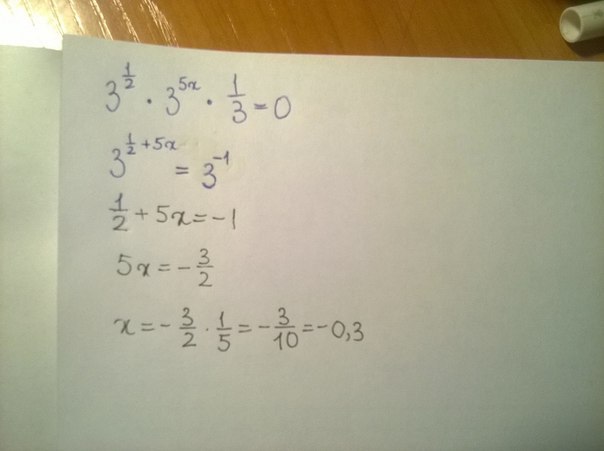 3^(1/2) · 3^(5x) · 1/3 = 0
3^(1/2 + 5x) = 3^(-1)
1/2 + 5x = -1
5x = - 3/2
x = - 3/2 · 1/5 = - 3/10 = -0,3